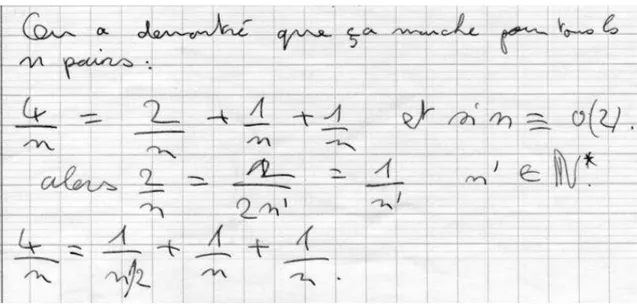 On a démontré que ça marche pour tous les
n pairs :
4/n = 2/n + 1/n + 1/n et si n ≡ 0(2).
alors 2/n = 2/2n' = 1/n' n' ∈ ℕ*.
4/n = 1/n/2 + 1/n + 1/n.